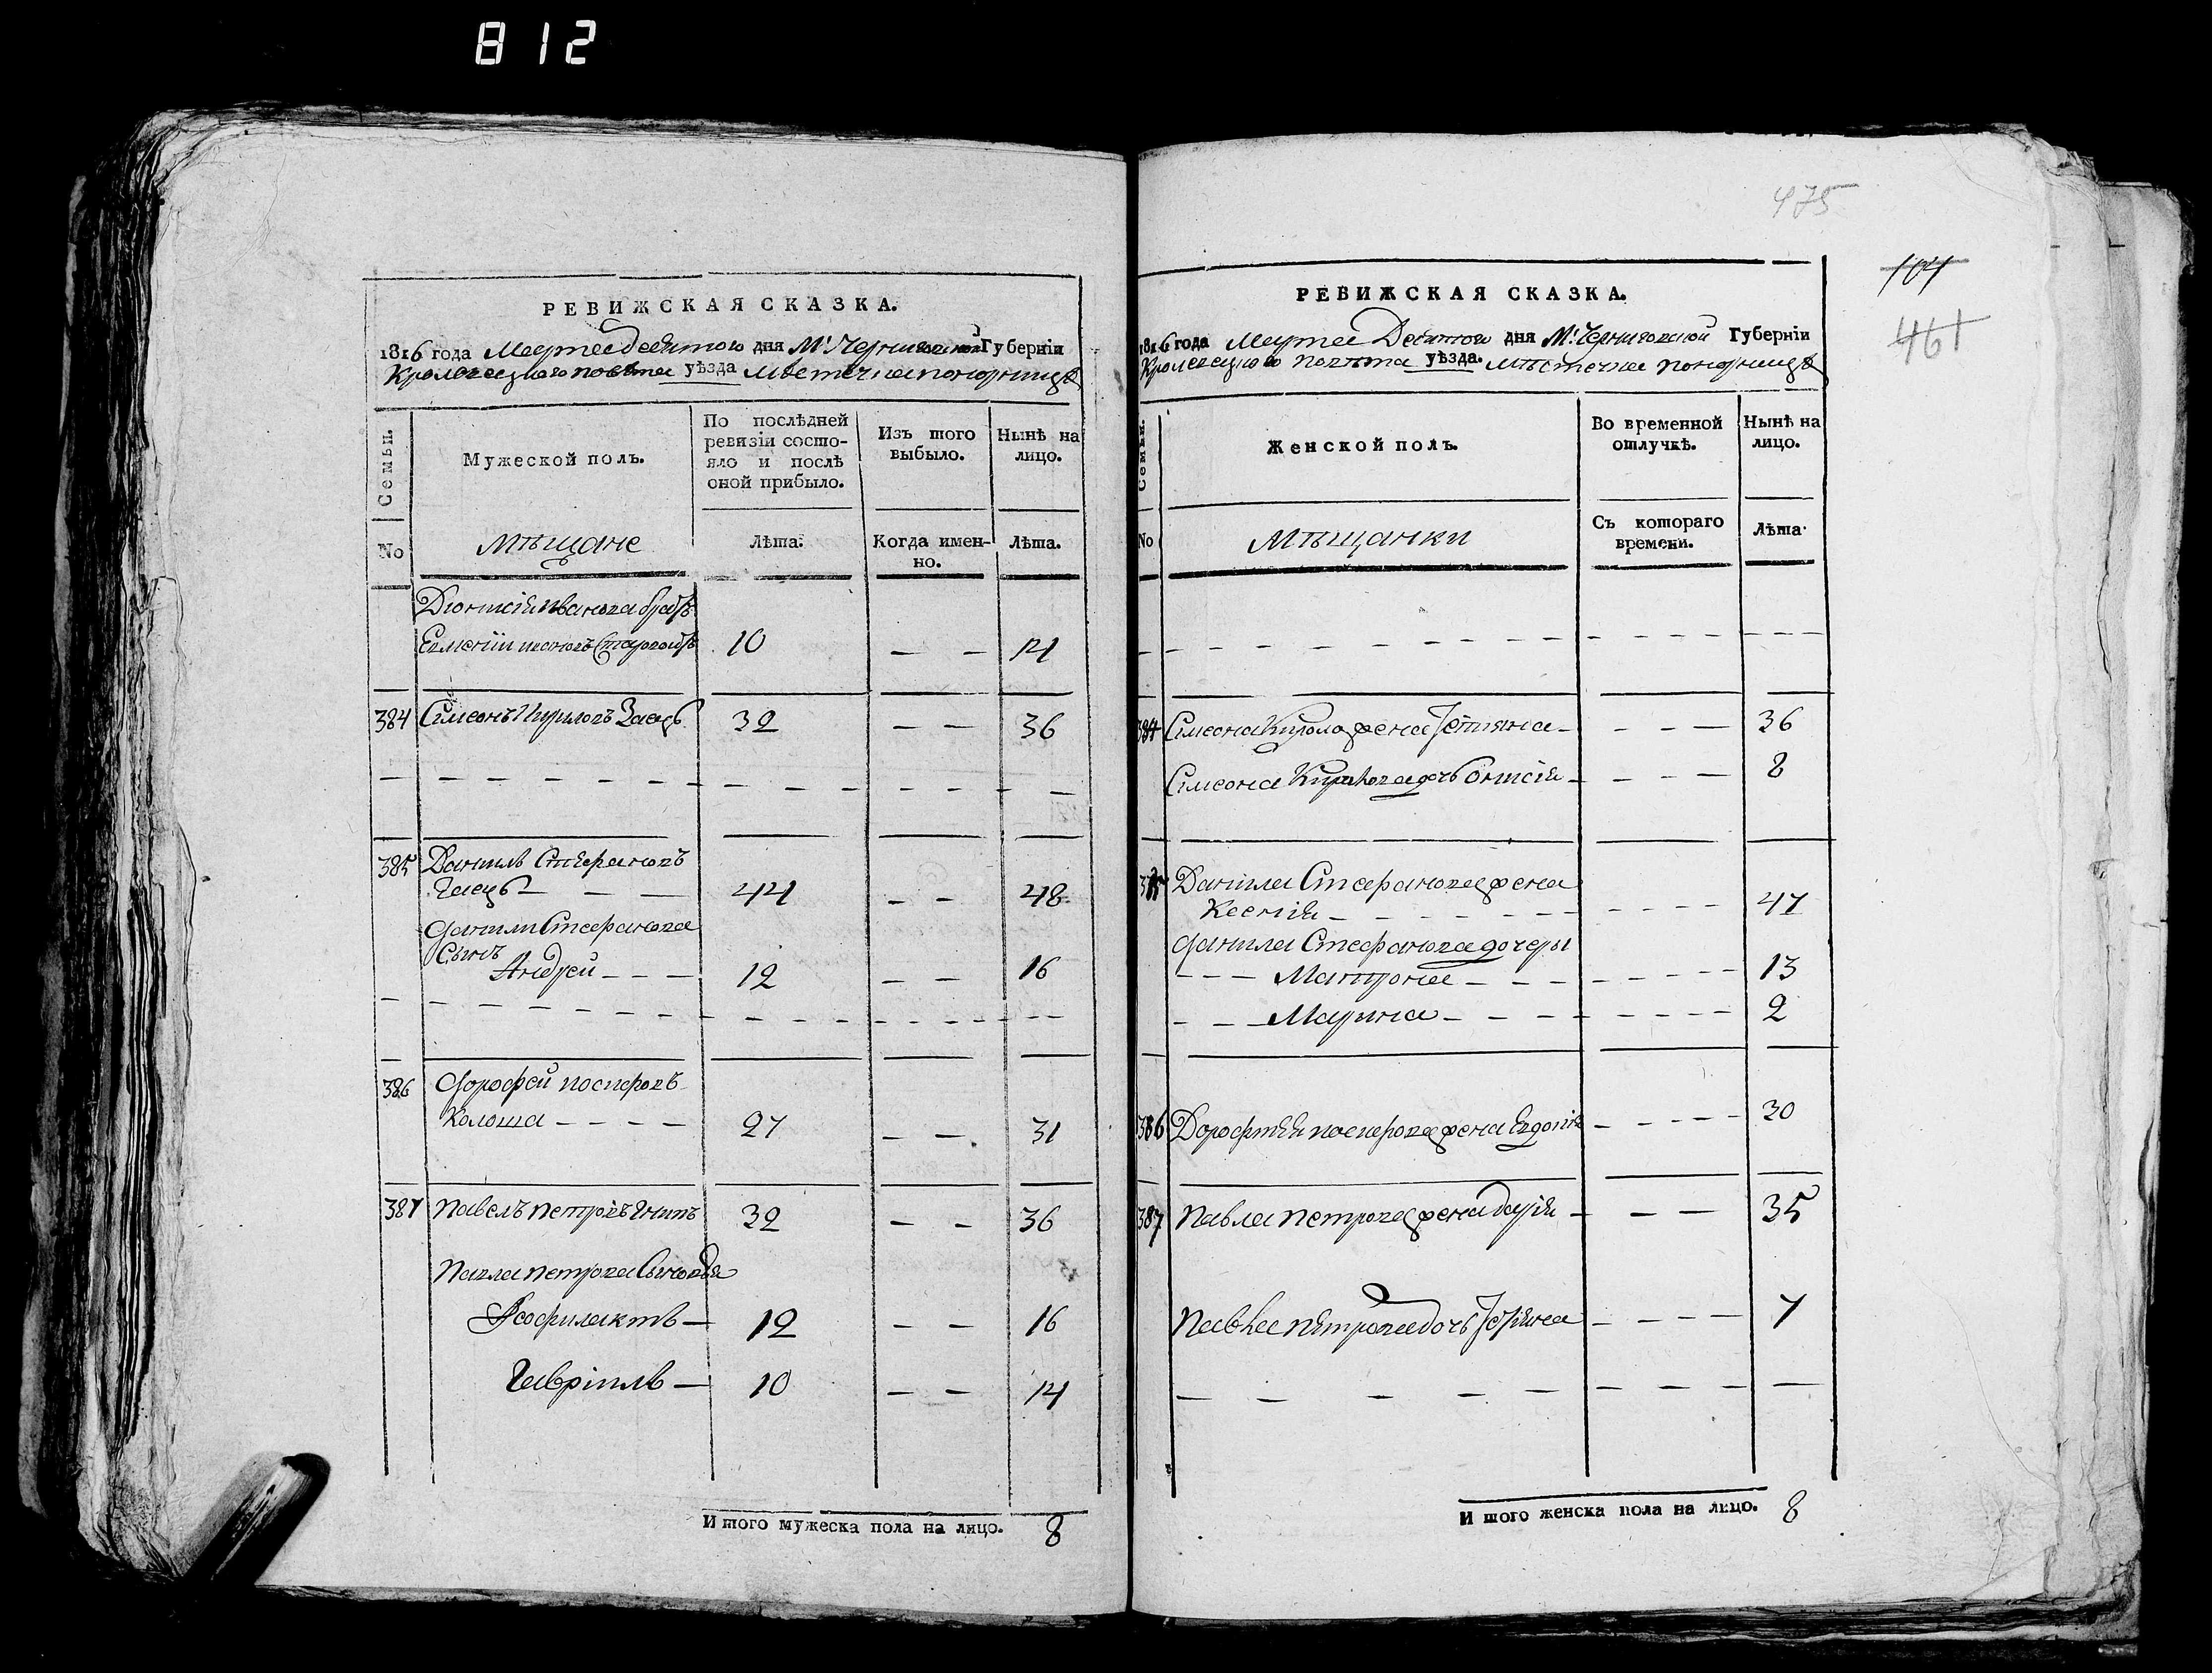 812
РЕВИЖСКАЯ СКАЗКА.
1816 года Марта десятого дня М. Черниговской Губерніи
Кролевецкого повѣта уѣзда мѣстечка Понорницѣ
Семьи.
Мужеской полъ.
По послѣдней ревизіи состояло и послѣ оной прибыло.
Изъ того выбыло.
Нынѣ на лицо.
No
Мѣщане
Лѣта.
Когда именно.
Лѣта.
Діонисія Иванова братъ
Ивановъ 10 — — 14
384 Симеонъ Кириловъ Заецъ 32 — — 36
385 Данилъ Стефановъ
Заецъ — — — 44 — — 48
Данила Стефанова
Сынъ
Андрей — — — 12 — — 16
386 Дорофей Иосифовъ
Колоша — — — — 27 — — 31
387 Павелъ Петровъ Гнипъ 32 — — 36
Павла Петрова Сыновья
Феофилактъ — 12 — — 16
Гавріилъ — 10 — — 14
И того мужеска пола на лицо. 8
475
104
461
РЕВИЖСКАЯ СКАЗКА.
1816 года Марта Десятого дня М. Черниговской Губерніи
Кролевецкого повѣта уѣзда. мѣстечка Понорницѣ
Семьи.
Женской полъ.
Во временной отлучкѣ.
Нынѣ на лицо.
No
Мѣщанки
Съ котораго времени.
Лѣта
384 Симеона Кирилова жена Татьяна — — — — 36
Симеона Кирилова дочь — — — — 8
385 Данила Стефанова жена
Ксенія — — — — 47
Данила Стефанова дочеры
— — — Матрона — — — 13
— — — Марина — — — 2
386 Дорофѣя Иосифова жена Евдокія — — — — 30
387 Павла Петрова жена Дарія — — — 35
Павла Петрова дочь — — — — 7
И того женска пола на лицо. 8